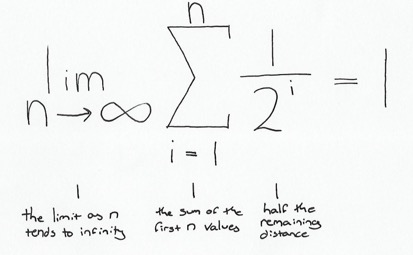 lim n→∞ n Σ i = 1 1/2^i = 1
the limit as n
tends to infinity
the sum of the
first n values
half the
remaining
distance